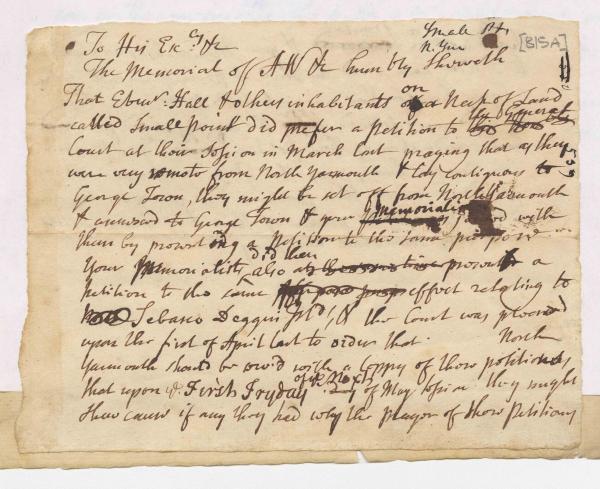 Small Pt
N. Yar [B15A]
To His Excy &c
The Memorial off AW &c humbly Sheweth
That Ebenr. Hall & others inhabitants on a Neck of Land
called Small Point did prefer a Petition to the General
Court at their Session in March last praying that as they
were very remote from North Yarmouth & lay contiguous to
George Town, they might be set off from North Yarmouth
& annexed to George Town & your memorialists joined with
them by presenting a Petition to the same purpose
Your Memorialists also did then present a
Petition to the same effect relating to
Sebasco Deggin Isld, & the Court was pleased
upon the first of April last to order that North
Yarmouth should be serv'd with a Coppy of those petitions
that upon ye First Fryday of the next May Session they might
Shew cause if any they had why the prayer of those Petitions